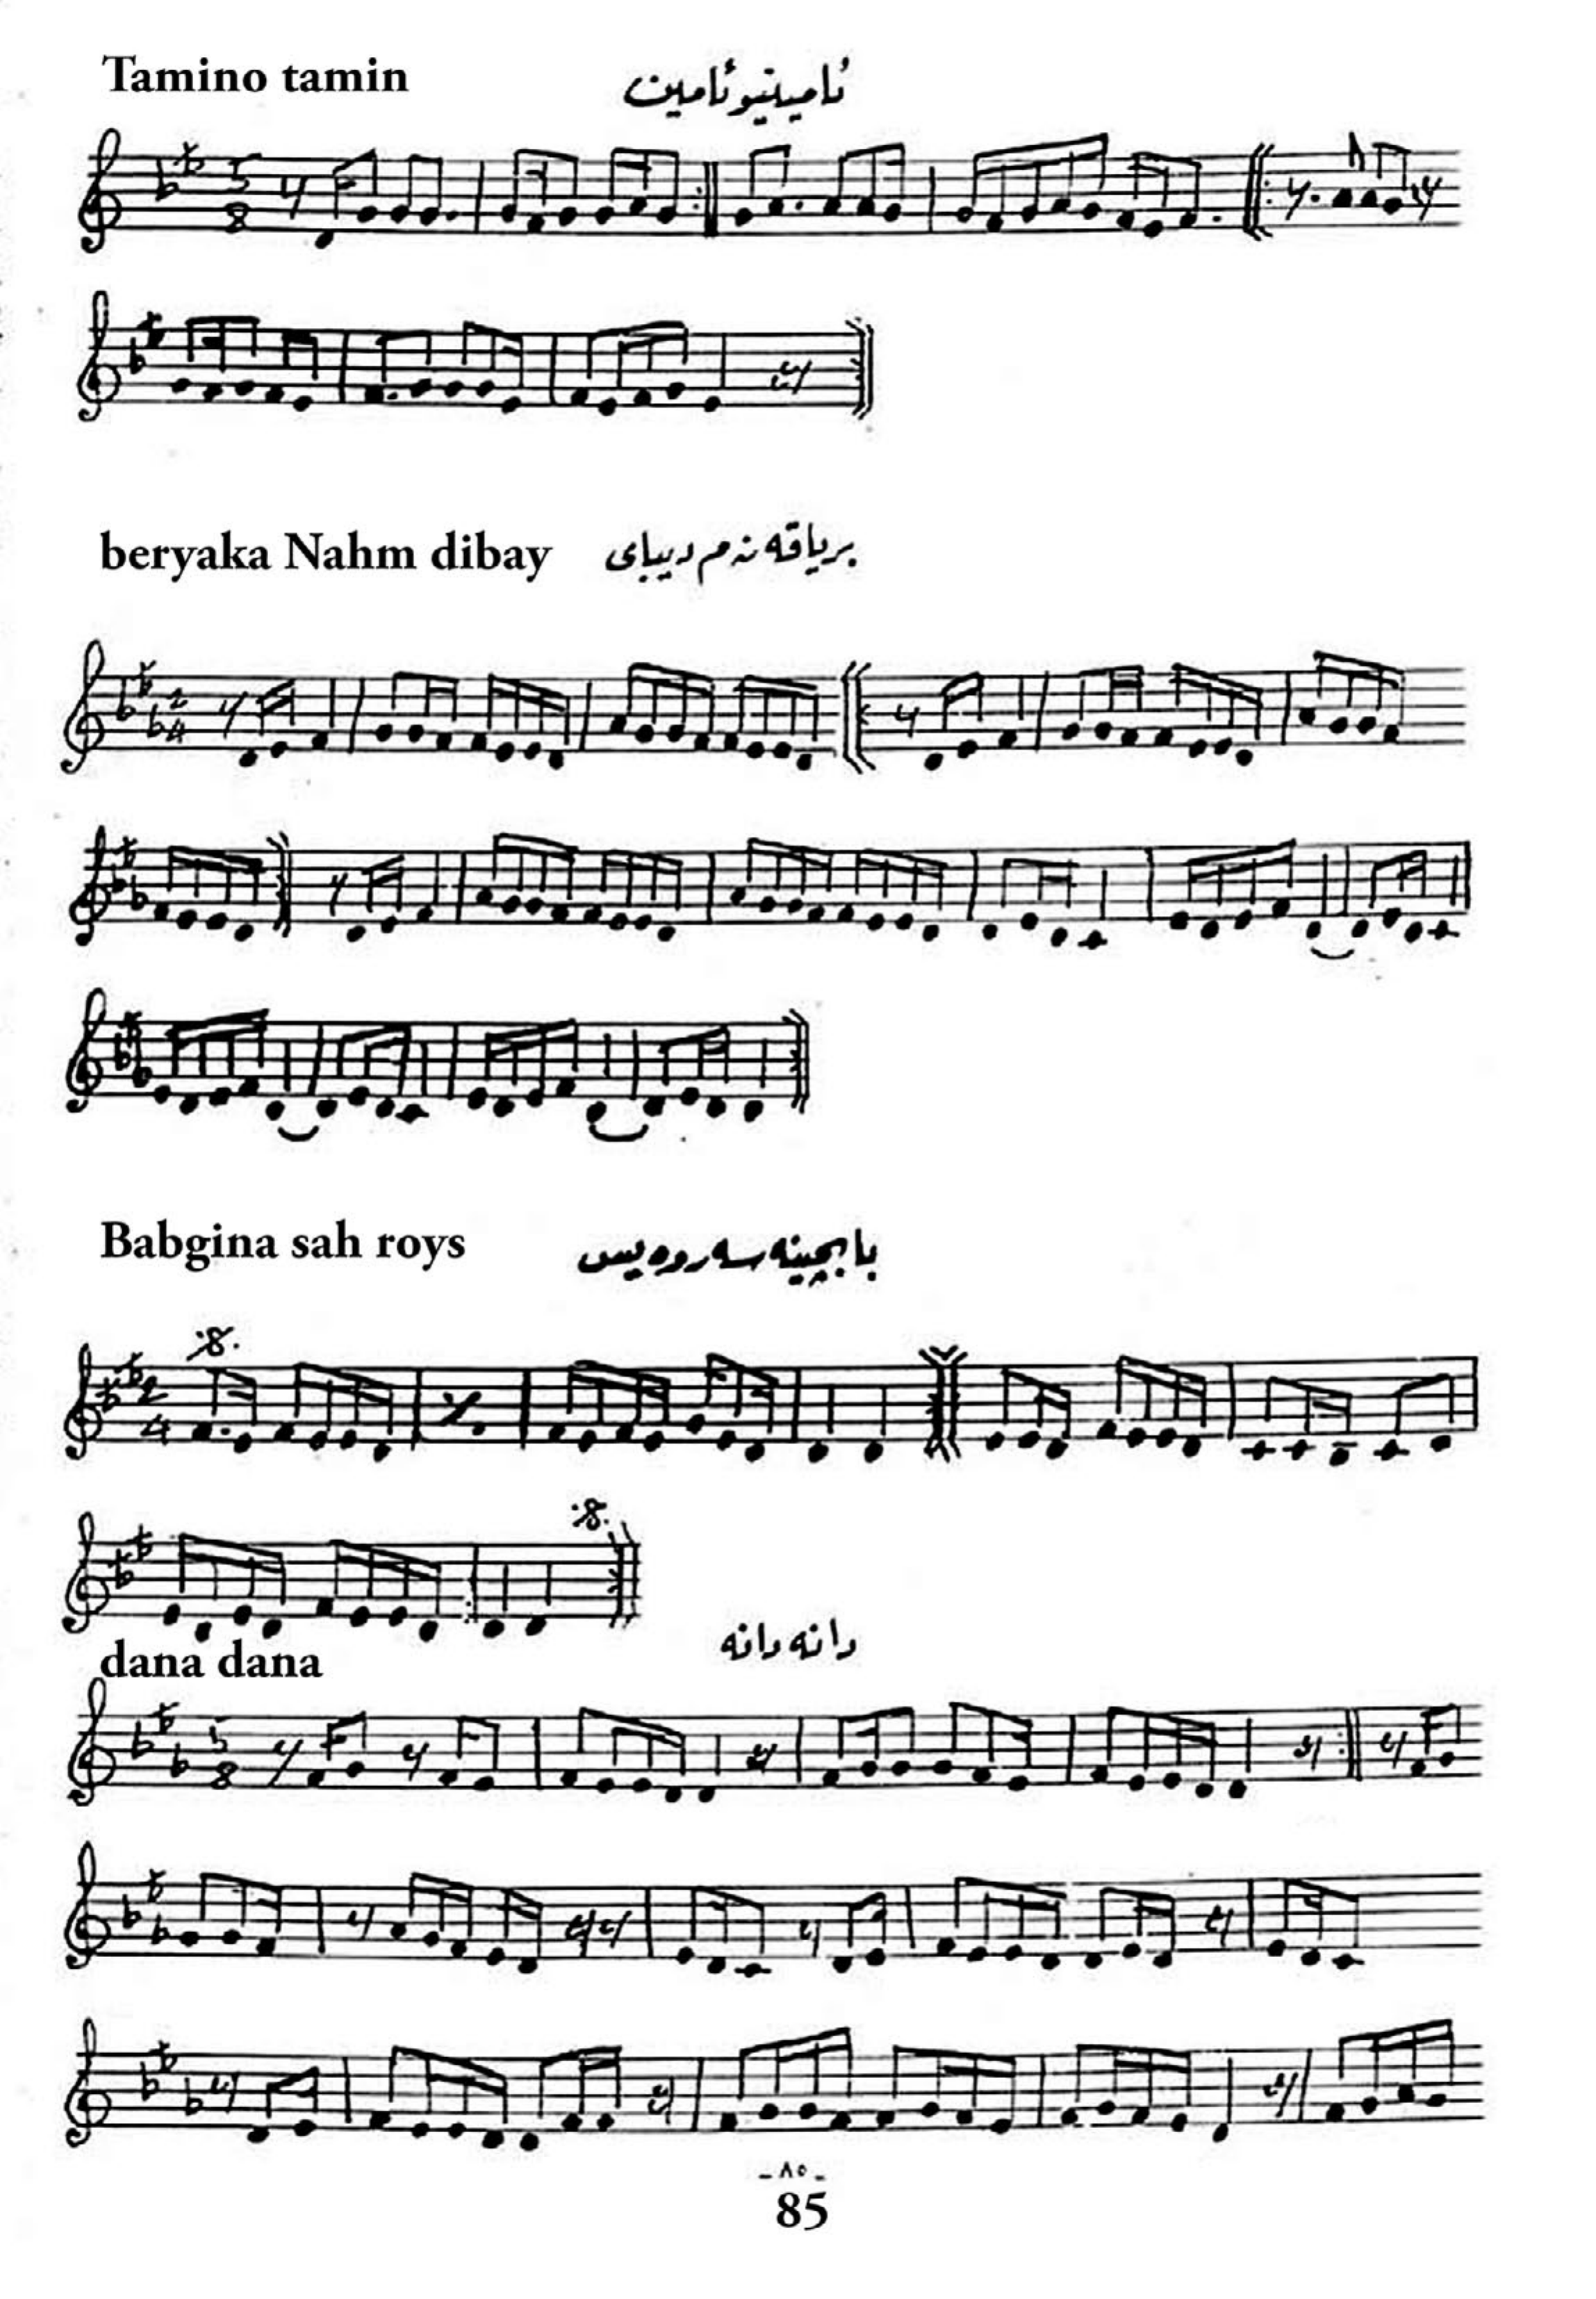 Tamino tamin ئامینیو ئامین
5
8
beryaka Nahm dibay بریاقه نه م دیبای
2
4
Babgina sah roys بابچینه سه ر وه یس
2
4
dana dana دانه دانه
5
8
- ٨٥ -
85